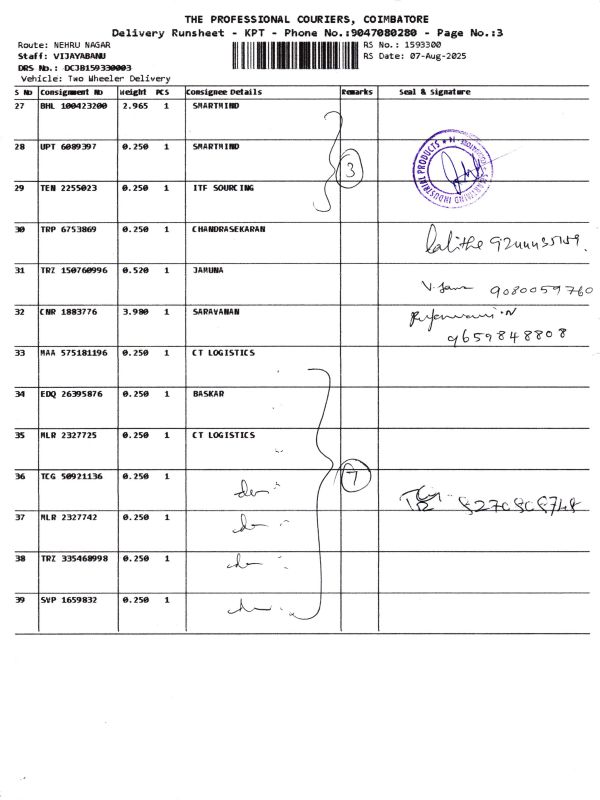 THE PROFESSIONAL COURIERS, COIMBATORE
Delivery Runsheet - KPT - Phone No.:9047080280 - Page No.:3
Route: NEHRU NAGAR
RS No.: 1593300
Staff: VIJAYABANU
RS Date: 07-Aug-2025
DRS No.: DCJB159330003
Vehicle: Two Wheeler Delivery
S No Consignment No Weight PCS Consignee Details Remarks Seal & Signature
27 BHL 100423200 2.965 1 SMARTMIND
28 UPT 6089397 0.250 1 SMARTMIND
3
29 TEN 2255023 0.250 1 ITF SOURCING
30 TRP 6753869 0.250 1 CHANDRASEKARAN
31 TRZ 150760996 0.520 1 JAMUNA
9080059760
32 CNR 1883776 3.980 1 SARAVANAN
9659848808
33 MAA 575181196 0.250 1 CT LOGISTICS
34 EDQ 26395876 0.250 1 BASKAR
35 MLR 2327725 0.250 1 CT LOGISTICS
36 TCG 50921136 0.250 1
7
37 MLR 2327742 0.250 1
38 TRZ 335468998 0.250 1
39 SVP 1659832 0.250 1